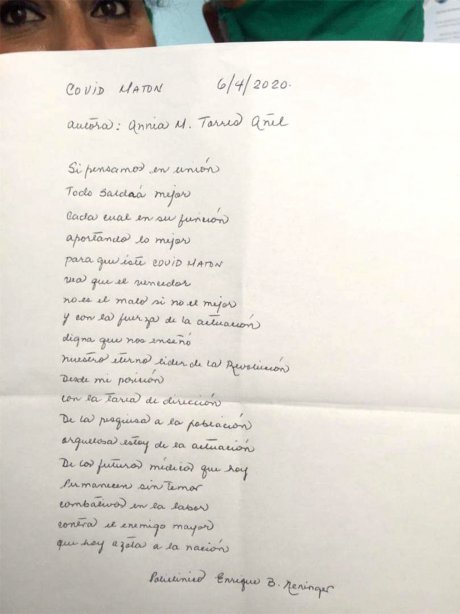 COVID MATON 6/4/2020.
autora: Annia M. Torres Añel
Si pensamos en unión
Todo saldrá mejor
Cada cual en su función
aportando lo mejor
para que éste COVID MATON
vea que el vencedor
no es el malo si no el mejor
y con la fuerza de la actuación
digna que nos enseñó
nuestro eterno líder de la Revolución
Desde mi posición
con la tarea de dirección
De la pesquisa a la población
orgullosa estoy de la actuación
De los futuros médicos que hoy
Permanecen sin temor
combativos en la labor
contra el enemigo mayor
que hoy azota a la nación
Policlínico Enrique B.